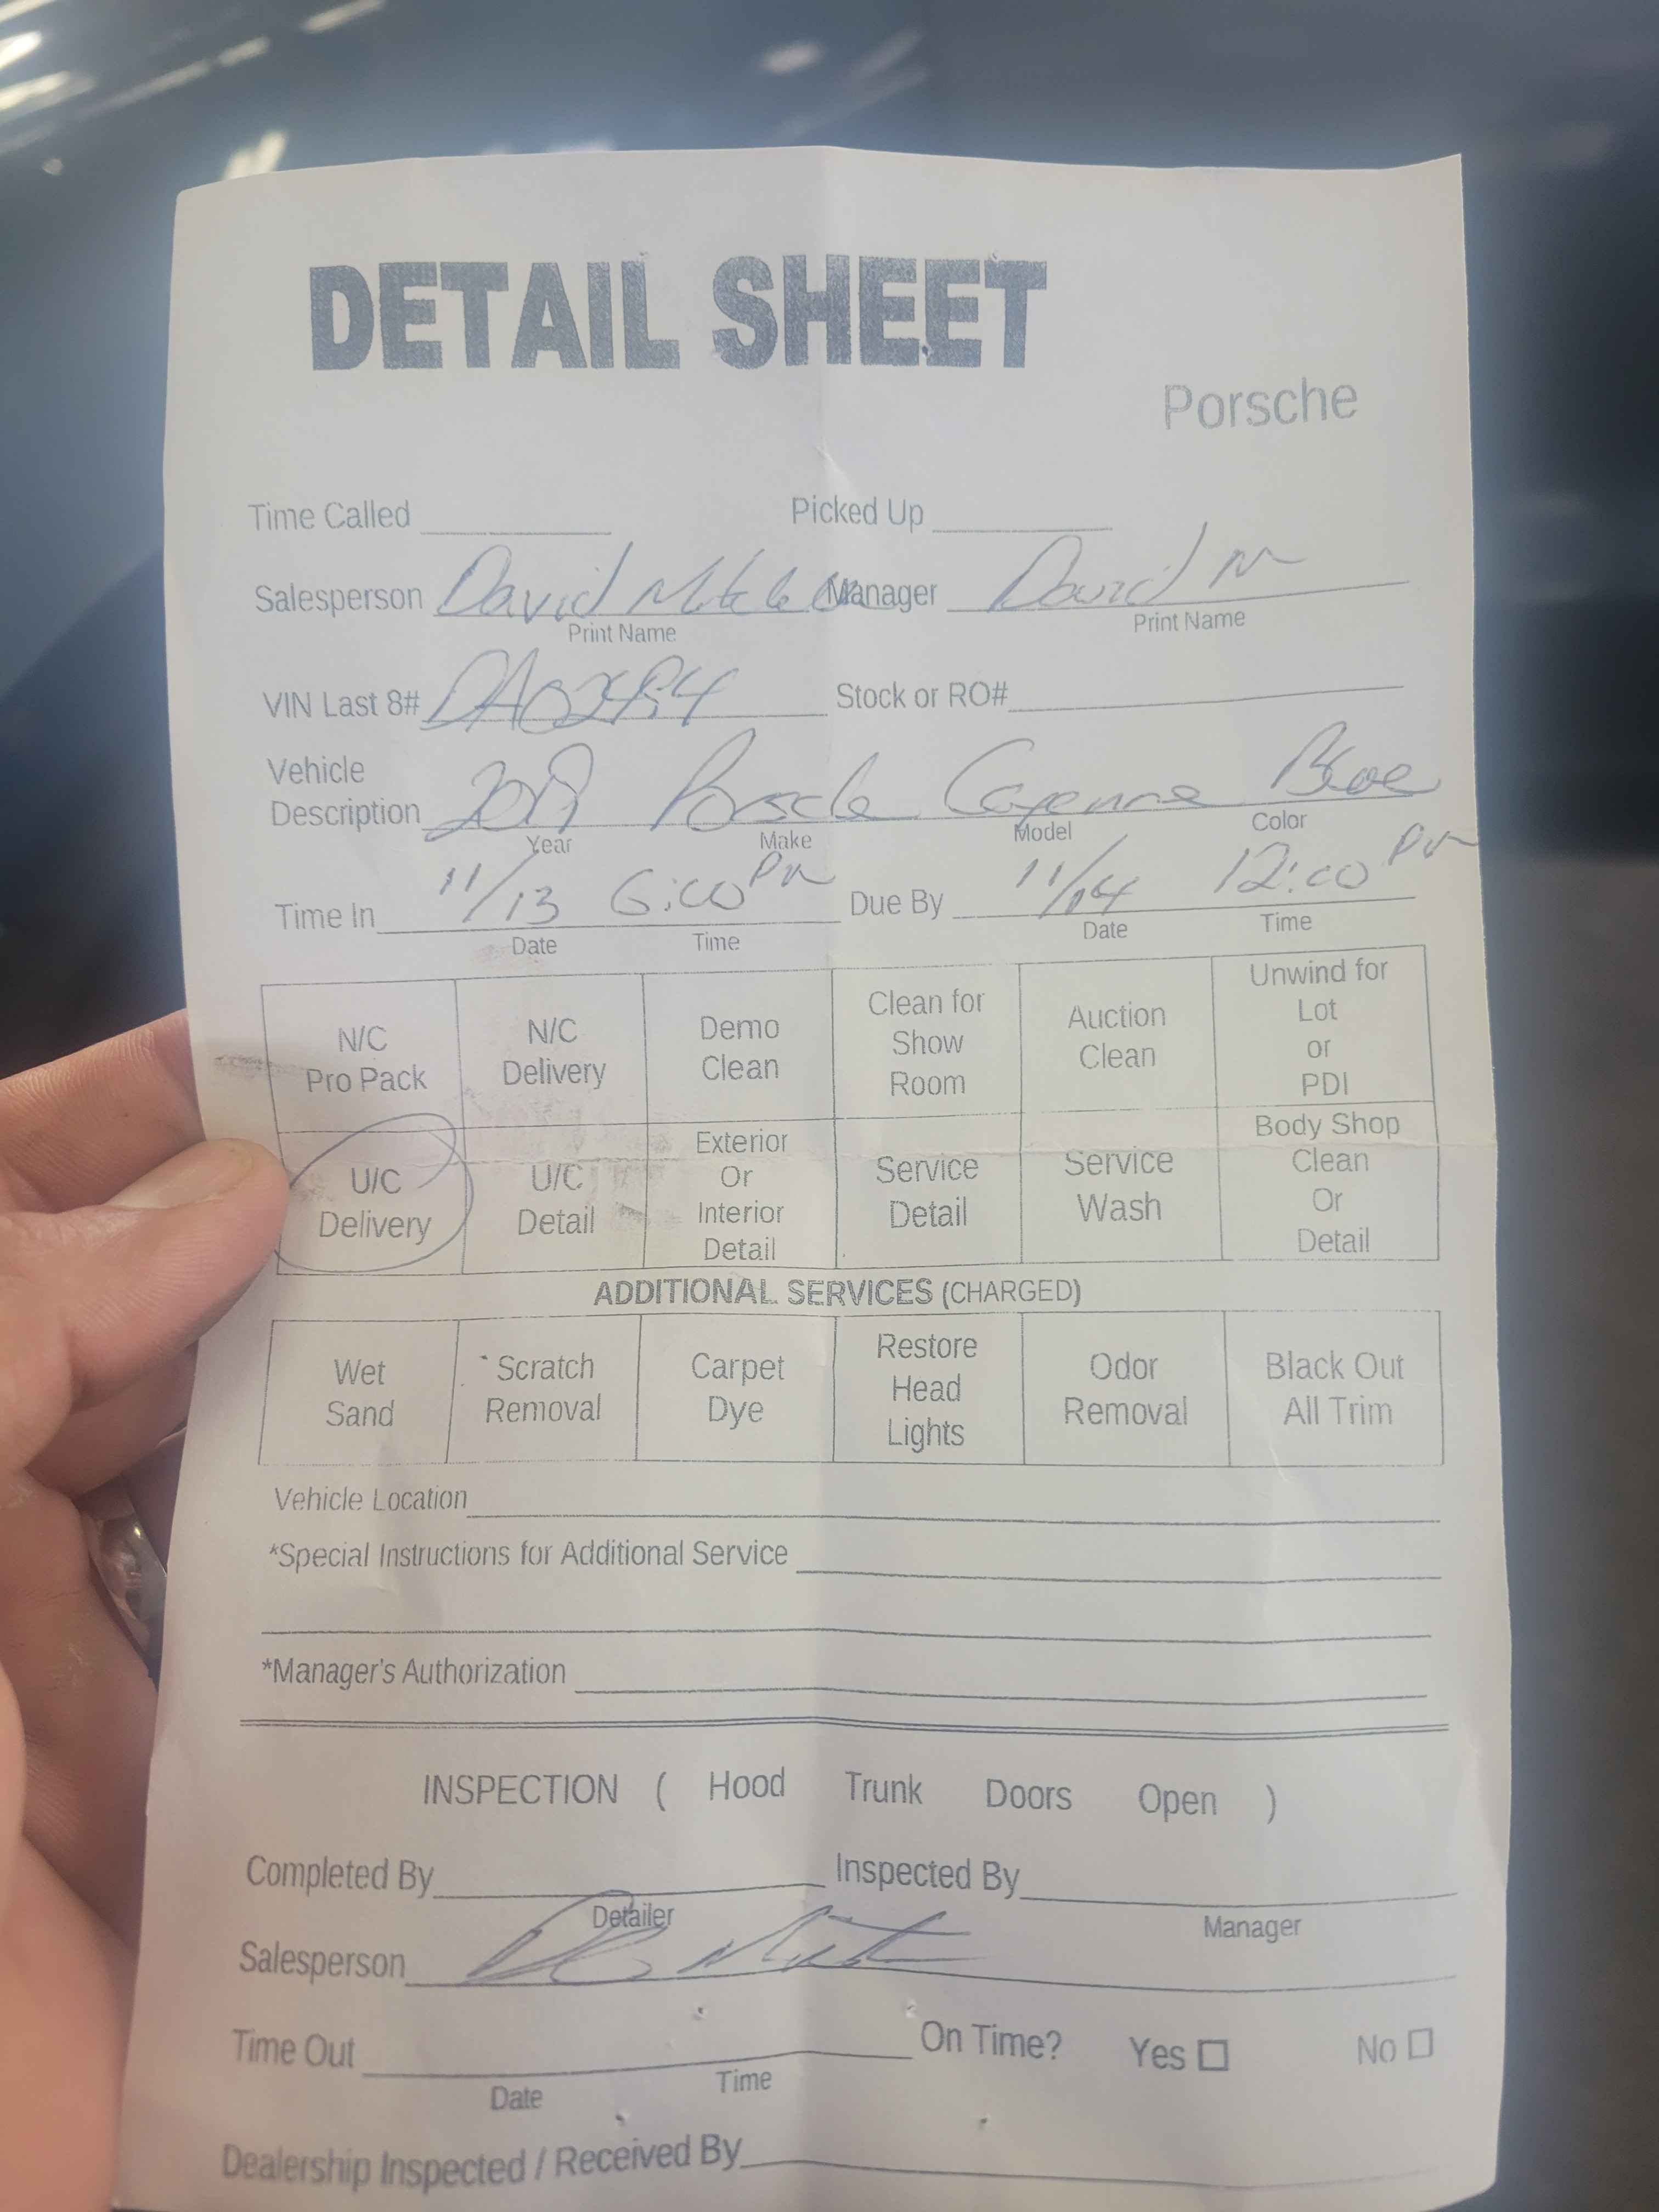 DETAIL SHEET
Porsche
Time Called Picked Up
Salesperson David Manager David M
Print Name Print Name
VIN Last 8# Stock or RO#
Vehicle
Description 2019 Porsche Cayenne Blue
Year Make Model Color
Time In 11/13 6:00 PM Due By 11/14 12:00 PM
Date Time Date Time
N/C Pro Pack N/C Delivery Demo Clean Clean for Show Room Auction Clean Unwind for Lot or PDI
U/C Delivery U/C Detail Exterior Or Interior Detail Service Detail Service Wash Body Shop Clean Or Detail
ADDITIONAL SERVICES (CHARGED)
Wet Sand Scratch Removal Carpet Dye Restore Head Lights Odor Removal Black Out All Trim
Vehicle Location
*Special Instructions for Additional Service
*Manager's Authorization
INSPECTION ( Hood Trunk Doors Open )
Completed By Inspected By
Detailer Manager
Salesperson
Time Out On Time? Yes No
Date Time
Dealership Inspected / Received By